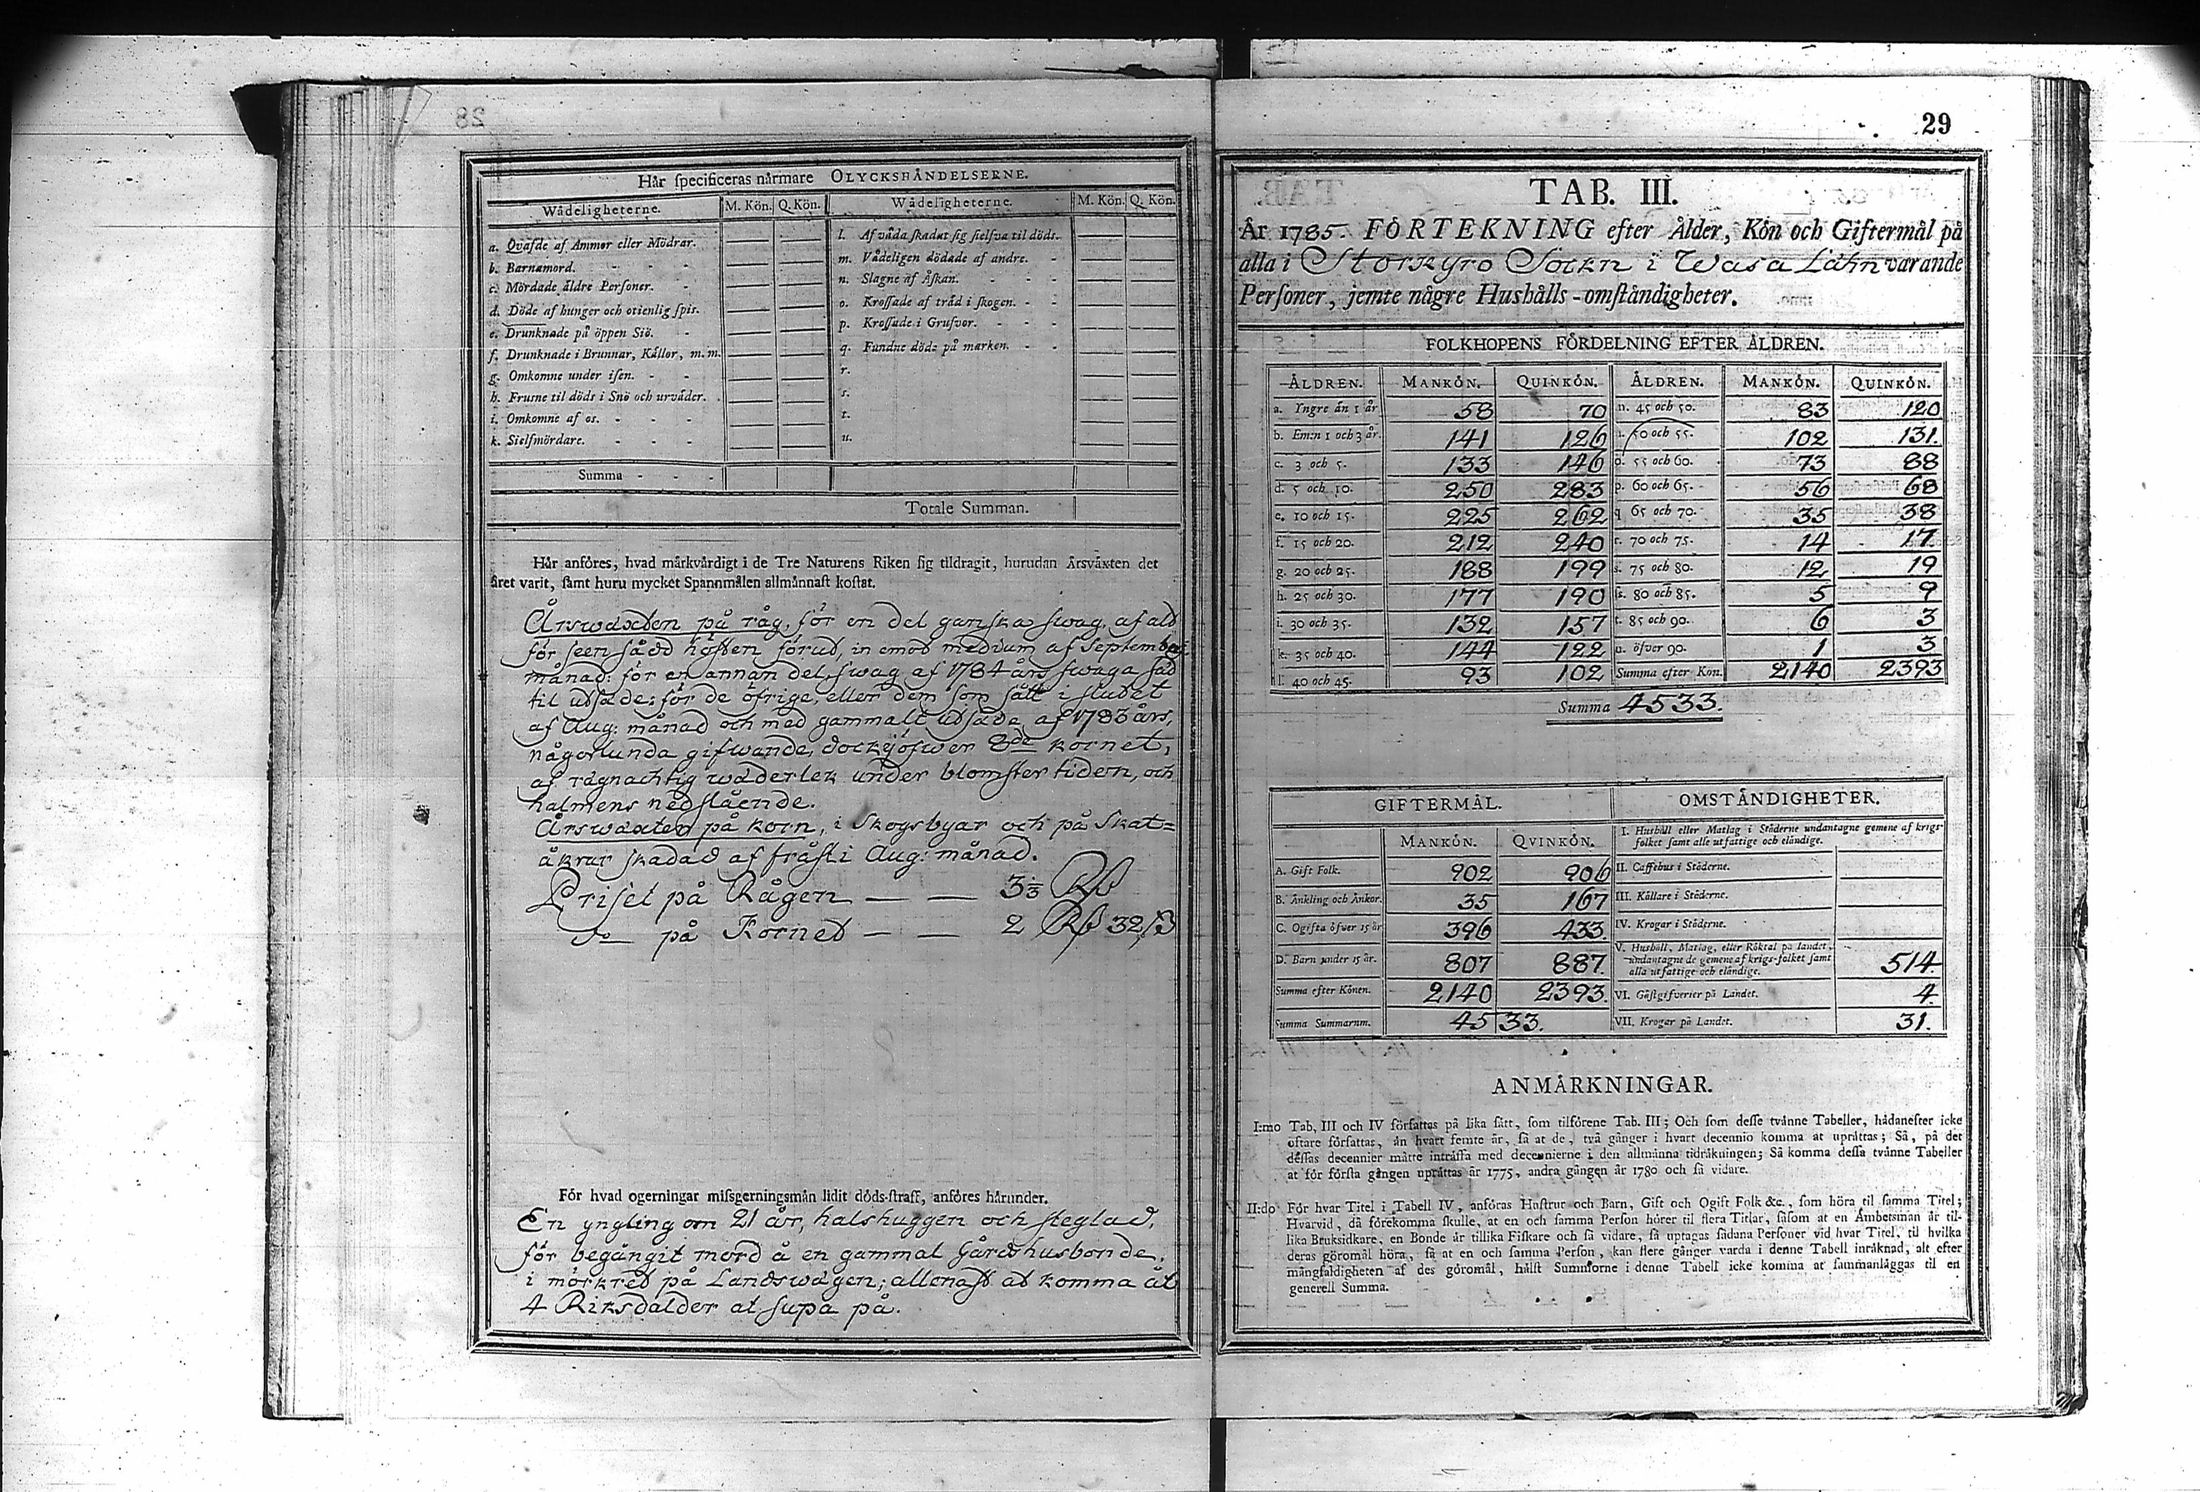 28
Här specificeras närmare OLYCKSHÄNDELSERNE.
Wådeligheterne. M. Kön. Q. Kön. Wådeligheterne. M. Kön. Q. Kön.
a. Qväfde af Ammor eller Mödrar. — — l. Af våda skadat sig sielfva til döds. — —
b. Barnamord. — — m. Vådeligen dödade af andre. — —
c. Mördade äldre Personer. — — n. Slagne af Åskan. — —
d. Döde af hunger och otienlig spis. — — o. Krossade af träd i skogen. — —
e. Drunknade på öppen Siö. — — p. Krossade i Grufvor. — —
f. Drunknade i Brunnar, Källor, m. m. — — q. Fundne döde på marken. — —
g. Omkomne under isen. — — r. — —
h. Frusne til döds i Snö och urväder. — — s. — —
i. Omkomne af os. — — t. — —
k. Sielfmördare. — — u. — —
Summa - - -
Totale Summan.
Här anföres, hvad märkvärdigt i de Tre Naturens Riken sig tildragit, hurudan Årsväxten det
året varit, samt huru mycket Spannmålen allmännast kostat.
Årswäxten på råg, för en del ganska swag, af alt
för seen sådd hösten förut, in emot medium af September
månad: för en annan del, swag af 1784 års swaga säd
til utsäde: för de öfrige, eller dem som sått i slutet
af Aug: månad och med gammalt utsäde af 1783 års,
någorlunda gifwande, dock ej öfwer 8de kornet,
af rägnachtig wäderlek under blomster tiden, och
halmens nedslående.
Årswäxten på korn, i Skogsbyar och på Skat=
åkrar skadad af fråst i Aug: månad.
Priset på Rågen — — 3 1/3 Rß
Do på Kornet — — 2 Rß 32 ß
För hvad ogerningar missgerningsmän lidit döds-straff, anföres härunder.
En yngling om 21 år, halshuggen och steglad,
för begångit mord å en gammal Gårdshusbonde,
i mörkret på Landswägen; allenast at komma åt
4 Riksdalder at supa på.
29
TAB. III.
År 1785. FÖRTEKNING efter Ålder, Kön och Giftermål på
alla i Storkyro Sockn i Wasa Lähn varande
Personer, jemte någre Hushålls-omständigheter.
FOLKHOPENS FÖRDELNING EFTER ÅLDREN.
ÅLDREN. MANKÖN. QUINKÖN. ÅLDREN. MANKÖN. QUINKÖN.
a. Yngre än 1 år 58 70 n. 45 och 50. 83 120
b. Em:n 1 och 3 år. 141 126 50 och 55. 102 131.
c. 3 och 5. 133 146 o. 55 och 60. 73 88
d. 5 och 10. 250 283 p. 60 och 65. 56 68
e. 10 och 15. 225 262 q. 65 och 70. 35 38
f. 15 och 20. 212 240 r. 70 och 75. 14 17.
g. 20 och 25. 188 199 s. 75 och 80. 12 19
h. 25 och 30. 177 190 s. 80 och 85. 5 9
i. 30 och 35. 132 157 t. 85 och 90. 6 3
k. 35 och 40. 144 122 u. öfver 90. 1 3
l. 40 och 45. 93 102 Summa efter Kön. 2140 2393
Summa 4533.
GIFTERMÅL. OMSTÄNDIGHETER.
MANKÖN. QVINKÖN. I. Hushåll eller Matlag i Städerne undantagne gemene af krigs-
folket samt alle utfattige och eländige.
A. Gift Folk. 902 906 II. Caffehus i Städerne.
B. Änkling och Änkor. 35 167 III. Källare i Städerne.
C. Ogifta öfver 15 år 396 433 IV. Krogar i Städerne.
D. Barn under 15 år. 807 887 V. Hushåll, Matlag, eller Röktal på landet,
undantagne de gemene af krigs-folket samt
alla utfattige och eländige. 514
Summa efter Könen. 2140 2393. VI. Gästgifverier på Landet. 4.
Summa Summarum. 4533. VII. Krogar på Landet. 31.
ANMÄRKNINGAR.
I:mo Tab. III och IV författas på lika sätt, som tilförene Tab. III; Och som desse tvänne Tabeller, hädanefter icke
oftare författas, än hvart femte år, så at de, två gånger i hvart decennio komma at uprättas; Så, på det
dessas decennier måtte inträffa med decennierne i den allmänna tidräkningen; Så komma dessa tvänne Tabeller
at för första gången uprättas år 1775, andra gången år 1780 och så vidare.
II:do För hvar Titel i Tabell IV, anföras Hustrur och Barn, Gift och Ogift Folk &c., som höra til samma Titel;
Hvarvid, då förekomma skulle, at en och samma Person hörer til flera Titlar, såsom at en Ämbetsman är til-
lika Bruksidkare, en Bonde är tillika Fiskare och så vidare, så uptagas sådana Personer vid hvar Titel, til hvilka
deras göromål höra, så at en och samma Person, kan flere gånger varda i denne Tabell inräknad, alt efter
mångfaldigheten af des göromål, hälst Summorne i denne Tabell icke komma at sammanläggas til en
generell Summa.